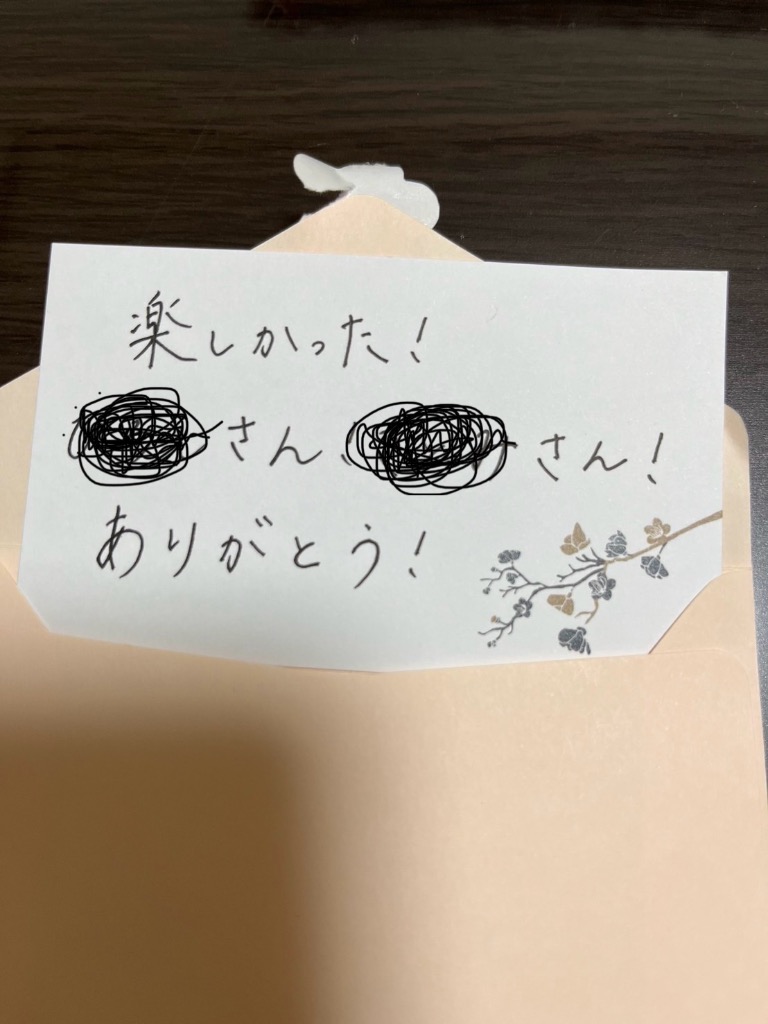 楽しかった!
さん、さん!
ありがとう!